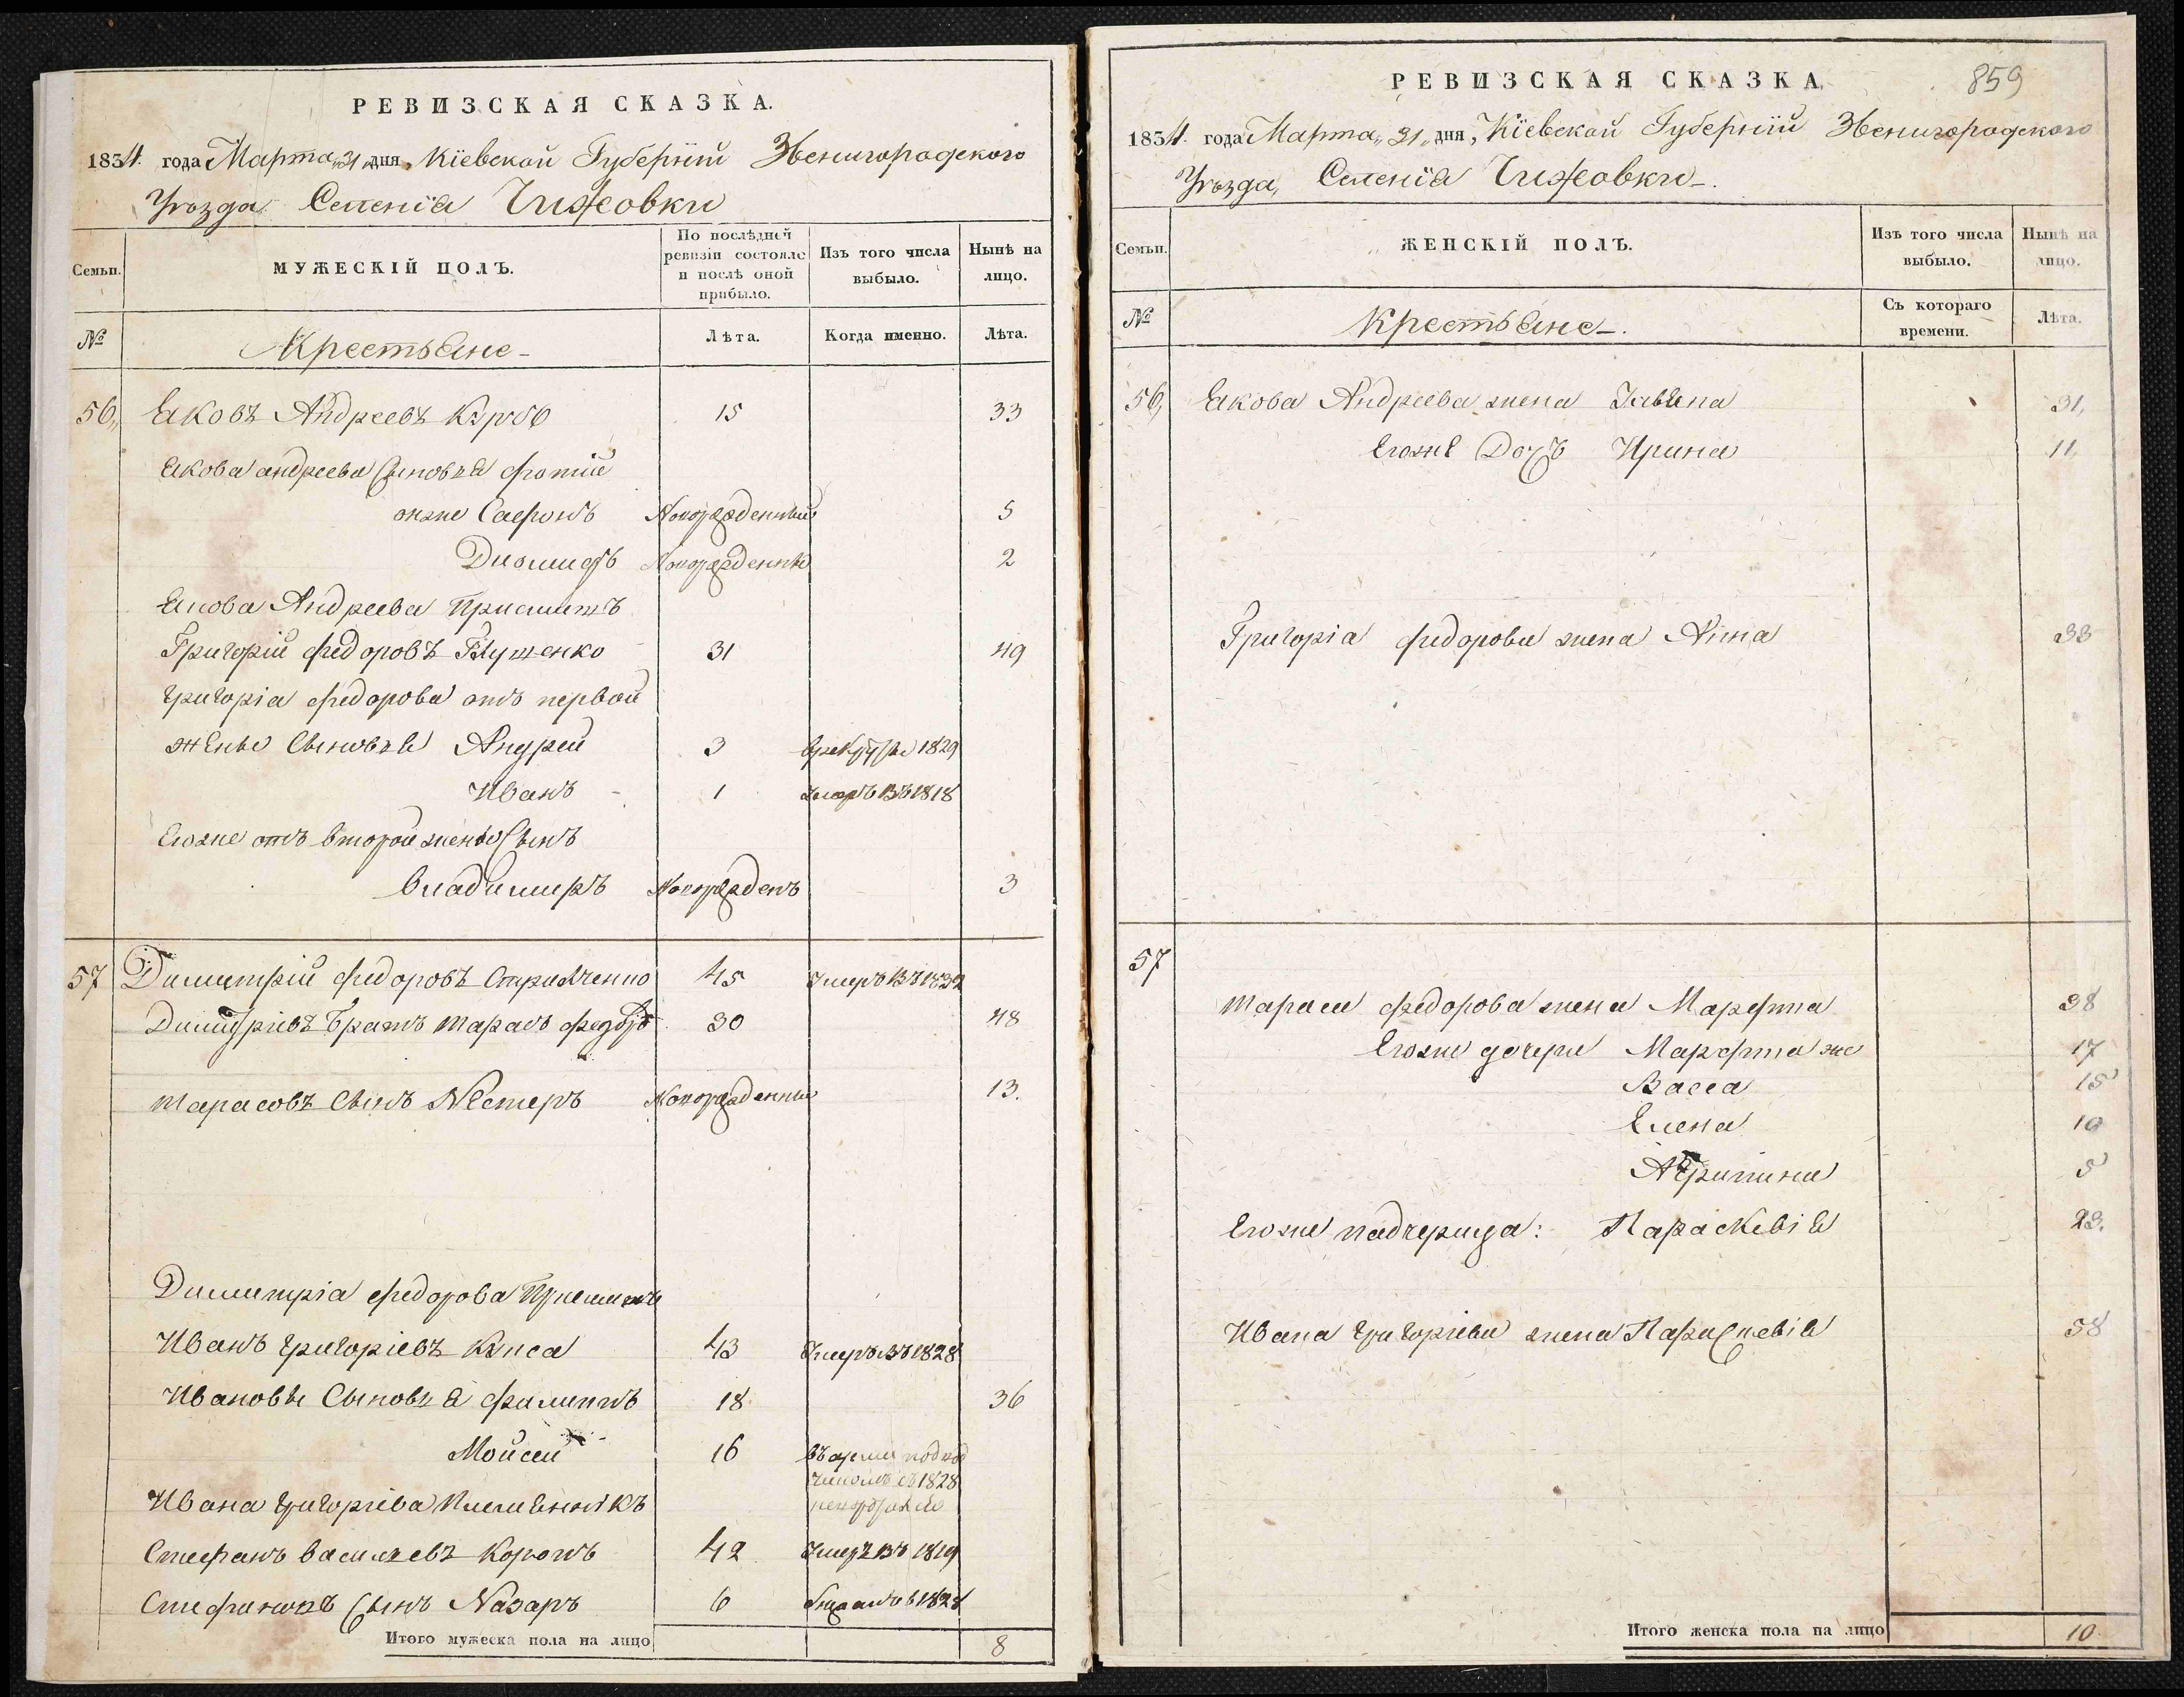 РЕВИЗСКАЯ СКАЗКА.
1834 года Марта „31„ дня, Кіевской Губерніи Звенигородского
Уѣзда Селенія Чижовки
Семьи.
МУЖЕСКІЙ ПОЛЪ.
По послѣдней ревизіи состояло и послѣ оной прибыло.
Изъ того числа выбыло.
Нынѣ на лицо.
№
Крестьяне
Лѣта.
Когда именно.
Лѣта.
56, Яковъ Андреевъ 15 33
Якова андреева Сыновъя Фотій
Новорожденный 5
Новорожденный 2
Якова Андреева
Григорій Федоровъ 31 49
Григорія Федорова отъ первой
жены Сыновья Андрей 3 1829
Иванъ 1 Умеръ въ 1818
Егоже отъ второй жены Сынъ
Владимиръ Новорожденъ 3
57 Димитрій Федоровъ 45 Умеръ въ 1832
Братъ Тарасъ 30 48
Тарасовъ Сынъ Нестеръ Новорожденный 13.
Димитрія Федорова
Иванъ Григоріевъ 43 Умеръ въ 1828
Ивановы Сыновья Филиппъ 18 36
Мойсей 16
1828
Ивана Григоріева Племянникъ
Стефанъ Василевъ 42 Умеръ въ 1819
Сынъ Назаръ 6
Итого мужеска пола на лицо 8
РЕВИЗСКАЯ СКАЗКА. 859
1834 года Марта „31„ дня, Кіевской Губерніи Звенигородского
Уѣзда, Селенія Чижовки.
Семьи.
ЖЕНСКІЙ ПОЛЪ.
Изъ того числа выбыло.
Нынѣ на лицо.
№
Крестьяне.
Съ котораго времени.
Лѣта.
56, Якова Андреева жена 31,
Егоже Дочь Ирина 11,
Григорія Федорова жена Анна 33
57
Тараса Федорова жена Марфта 38
Егоже дочери Марфта же 17
Васса 15
Елена 10
Агрипина 5
Егоже падчерица: Параскевія 23.
Ивана Григоріева жена Параскевія 58
Итого женска пола на лицо 10